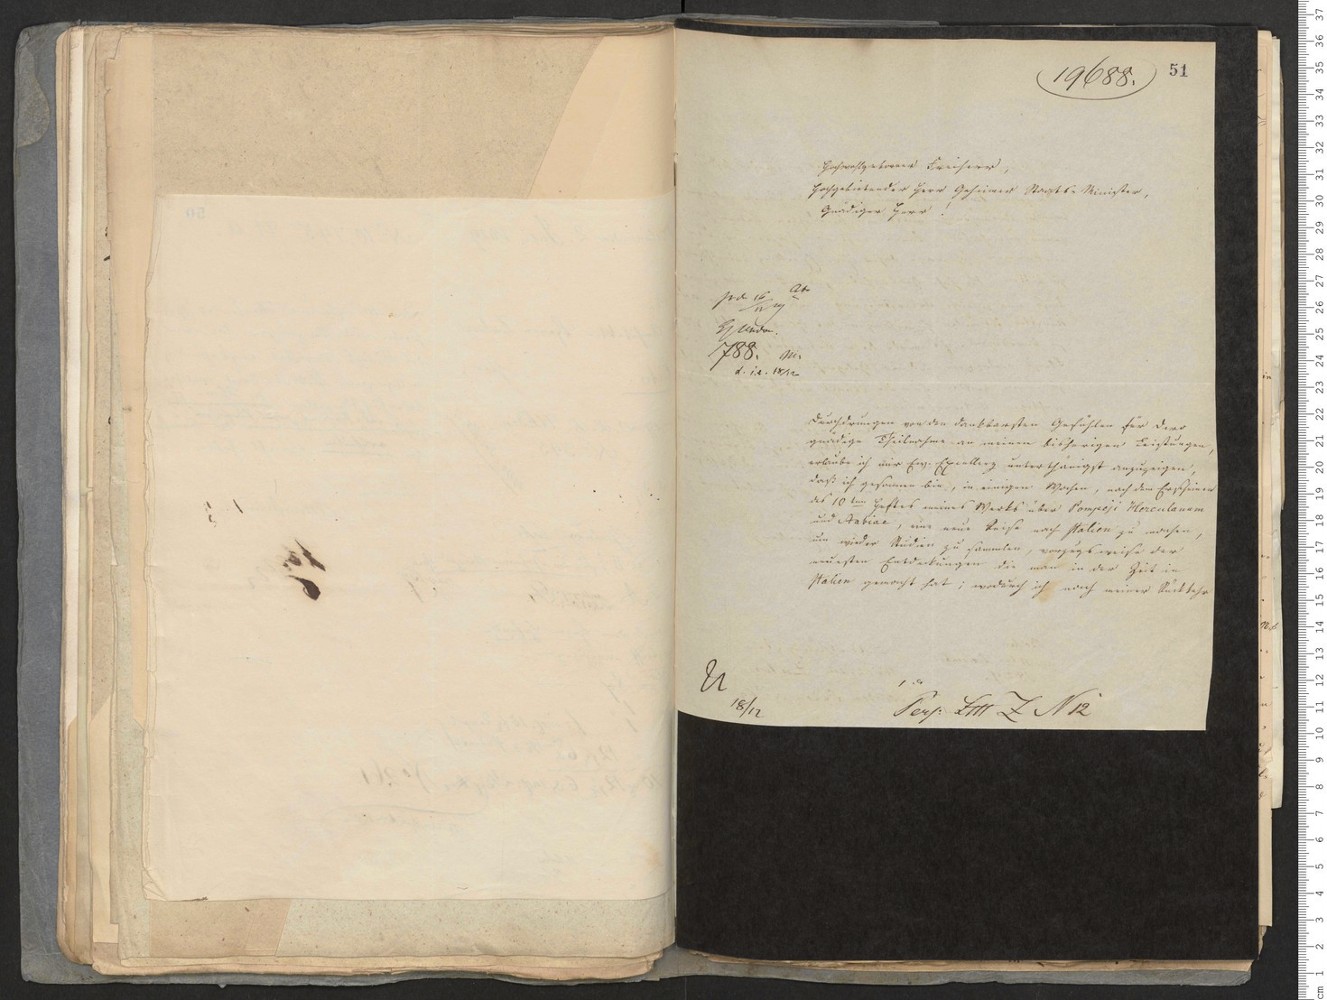 19688.
51
Hochwohlgeborner Freiherr,
Hochgebietender Herr Geheimer Staats-Minister,
Gnädiger Herr!
788.
18/12
Durchdrungen von den dankbarsten Gefühlen für Dero
gnädige Theilnahme an meinen bisherigen Leistungen,
erlaube ich mir Ew. Excellenz unterthänigst anzuzeigen,
daß ich gesonnen bin, in einigen Wochen, nach dem Erscheinen
des 10ten Heftes meines Werks über Pompeji Herculanum
und Stabiae, eine neue Reise nach Italien zu machen,
um wieder Studien zu sammlen, vorzugsweise der
neuesten Entdeckungen die man in der Zeit in
Italien gemacht hat; wodurch ich nach meiner Rückkehr
18/12
Litt Z N 12